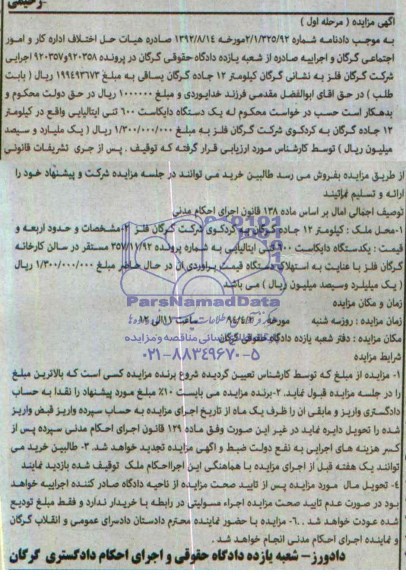 آگهی مزایده ( مرحله اول )
به موجب دادنامه شماره ۲/۱/۳۲۵/۹۲مورخه ۱۳۹۲/۸/۱۴ صادره هیات حل اختلاف اداره کار و امور
اجتماعی گرگان و اجراییه صادره از شعبه یازده دادگاه حقوقی گرگان در پرونده ۹۲۰۳۵۸و۹۲۰۳۵۷ اجرایی
شرکت گرگان فلز به نشانی گرگان کیلومتر ۱۲ جاده گرگان بساقی به مبلغ ۱۹۹۴۹۳۱۷۳ ریال ( بابت
طلب ) در حق اقای ابوالفضل مقدمی فرزند خداویردی و مبلغ ۱۰۰۰۰۰۰ ریال در حق دولت محکوم و
بدهکار است حسب در خواست محکوم له یک دستگاه دایکاست ۶۰۰ تنی ایتالیایی واقع در کیلومتر
۱۲ جاده گرگان به کردکوی شرکت گرگان فلز به مبلغ ۱/۳۰۰/۰۰۰/۰۰۰ ریال ( یک ملیارد و سیصد
میلیون ریال ) توسط کارشناس مورد ارزیابی قرار گرفته که توقیف . پس از جری تشریفات قانونی
از طریق مزایده بفروش می رسد طالبین خرید می توانند در جلسه مزایده شرکت و پیشنهاد خود را
ارائه و تسلیم نمائیند
توصیف اجمالی امال بر اساس ماده ۱۳۸ قانون اجرای احکام مدنی
۱-محل ملک : کیلومتر ۱۲ جاده گرگان به کردکوی شرکت گرگان فلز ۲-مشخصات و حدود اربعه و
قیمت : یکدستگاه دایکاست ۶۰۰ تنی ایتالیایی به شماره پرونده ۳۵۷/۱۱/۹۲ مستقر در سالن کارخانه
گرگان فلز با عنایت به استهلاک دستگاه قیمت براوردی آن در حال حاضر مبلغ ۱/۳۰۰/۰۰۰/۰۰۰ ریال
( یک میلیارد وسیصد میلیون ریال ) می باشد
زمان و مکان مزایده
زمان مزایده : روزسه شنبه مورخه ساعت ۱۱ الی ۱۲
مکان مزایده : دفتر شعبه یازده دادگاه حقوقی گرگان
شرایط مزایده
۱- مزایده از مبلغ که توسط کارشناس تعیین گردیده شروع برنده مزایده کسی است که بالاترین مبلغ
را در جلسه مزایده قبول نماید. ۲-برنده مزایده می بایست ۱۰٪ مبلغ مورد پیشنهاد را نقدا به حساب
دادگستری واریز و مابقی ان را ظرف یک ماه از تاریخ اجرای مزایده به حساب سپرده واریز قبض واریز
شده را تحویل دایره نماید در غیر این صورت وفق ماده ۱۲۹ قانون اجرای احکام مدنی سپرده پس از
کسر هزینه های اجرایی به نفع دولت ضبط و اگهی مزایده تجدید خواهد شد. ۳- طالبین خرید می
توانند یک هفته قبل از اجرای مزایده با هماهنگی این اجرااحکام ملک توقیف شده بازدید نمایند
۴- تحویل مال مورد مزایده پس از تایید صحت مزایده از ناحیه دادگاه صادر کننده اجراییه خواهد
بود در صورت عدم تایید صحت مزایده اجراء مسولیتی در رابطه با خریدار ندارد و فقط مبلغ تودیع
شده عودت خواهد شد . ۶- مزایده با حضور نماینده محترم دادستان دادسرای عمومی و انقلاب گرگان
و نماینده اجرای احکام مدنی انجام خواهد شد .
دادورز – شعبه یازده دادگاه حقوقی و اجرای احکام دادگستری گرگان
ParsNamadData
پایگاه اطلاع رسانی مناقصه و مزایده
۰۲۱-۸۸۳۴۹۶۷۰-۵